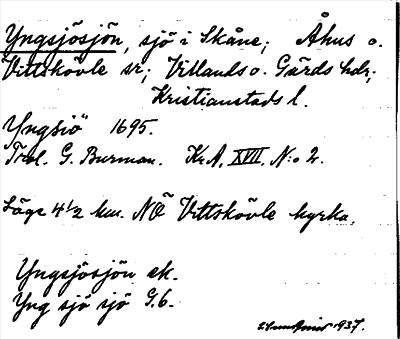 Yngsjösjön, sjö i Skåne; Åhus o.
Vittskövle sr; Villands o. Gärds hdr;
Kristianstads l.
Yngsiö 1695.
G. Burman. Kr. A. XVII. N:o 2.
Läge 4 1/2 km. NÖ Vittskövle kyrka.
Yngsjösjön ek.
Yng sjö sjö G.6.
1937.